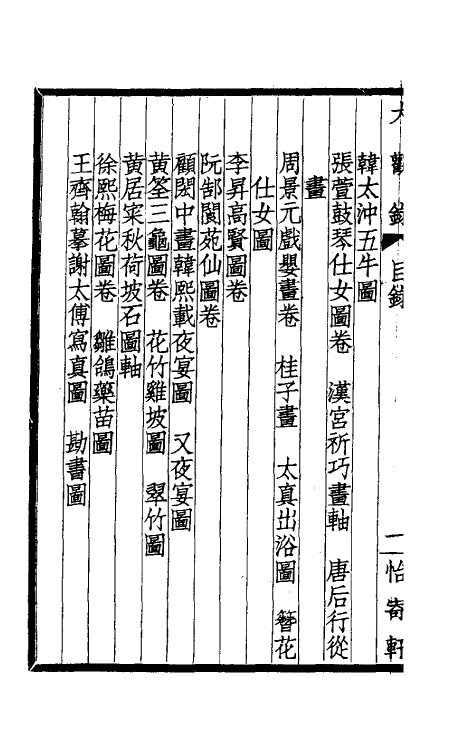 大觀錄 目錄 二 怡寄軒
韓太沖五牛圖
張萱鼓琴仕女圖卷 漢宮祈巧畫軸 唐后行從
畫
周景元戲嬰畫卷 桂子畫 太真出浴圖 簪花
仕女圖
李昇高賢圖卷
阮郜閬苑仙圖卷
顧閎中畫韓熙載夜宴圖 又夜宴圖
黃筌三龜圖卷 花竹雞坡圖 翠竹圖
黃居寀秋荷坡石圖軸
徐熙梅花圖卷 雛鴿藥苗圖
王齊翰摹謝太傅寫真圖 勘書圖